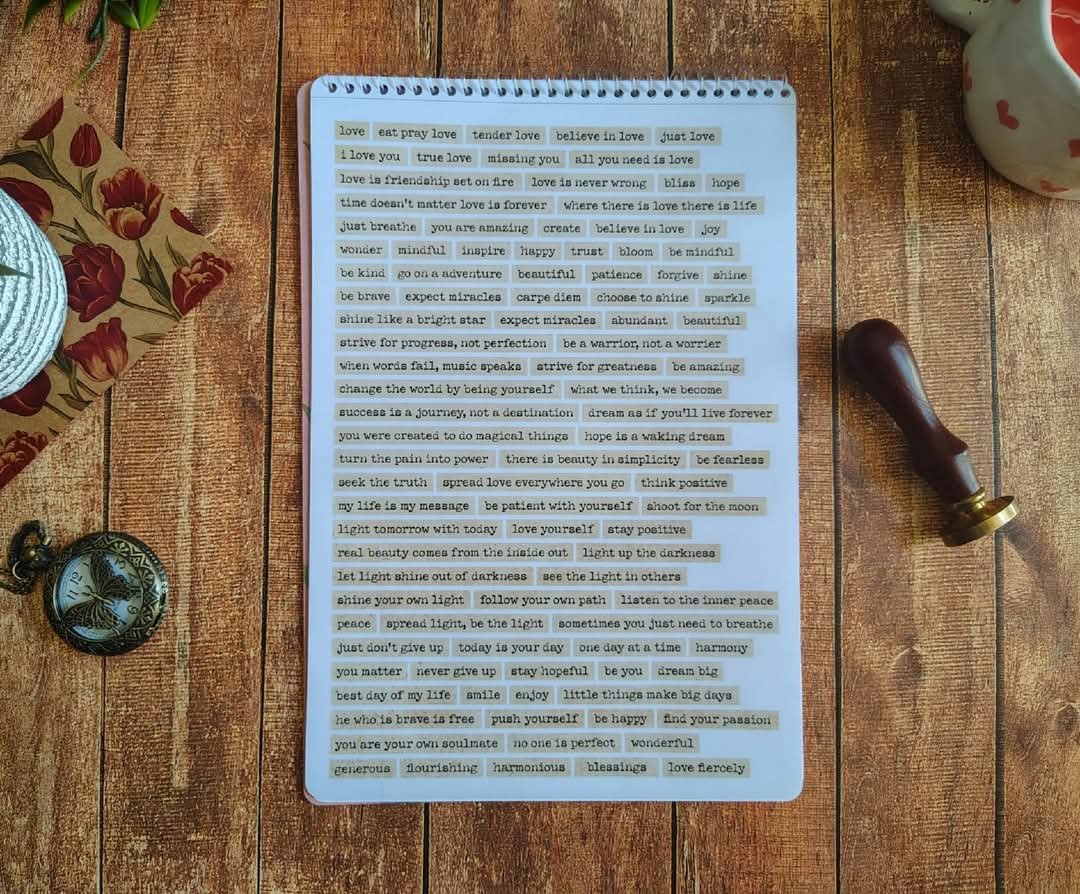 love eat pray love tender love believe in love just love
i love you true love missing you all you need is love
love is friendship set on fire love is never wrong bliss hope
time doesn't matter love is forever where there is love there is life
just breathe you are amazing create believe in love joy
wonder mindful inspire happy trust bloom be mindful
be kind go on a adventure beautiful patience forgive shine
be brave expect miracles carpe diem choose to shine sparkle
shine like a bright star expect miracles abundant beautiful
strive for progress, not perfection be a warrior, not a worrier
when words fail, music speaks strive for greatness be amazing
change the world by being yourself what we think, we become
success is a journey, not a destination dream as if you'll live forever
you were created to do magical things hope is a waking dream
turn the pain into power there is beauty in simplicity be fearless
seek the truth spread love everywhere you go think positive
my life is my message be patient with yourself shoot for the moon
light tomorrow with today love yourself stay positive
real beauty comes from the inside out light up the darkness
let light shine out of darkness see the light in others
shine your own light follow your own path listen to the inner peace
peace spread light, be the light sometimes you just need to breathe
just don't give up today is your day one day at a time harmony
you matter never give up stay hopeful be you dream big
best day of my life smile enjoy little things make big days
he who is brave is free push yourself be happy find your passion
you are your own soulmate no one is perfect wonderful
generous flourishing harmonious blessings love fiercely
12
11
9